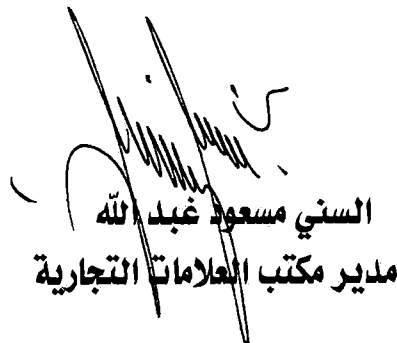 السني مسعود غبد الله
مدير مكتب العلامات التجارية